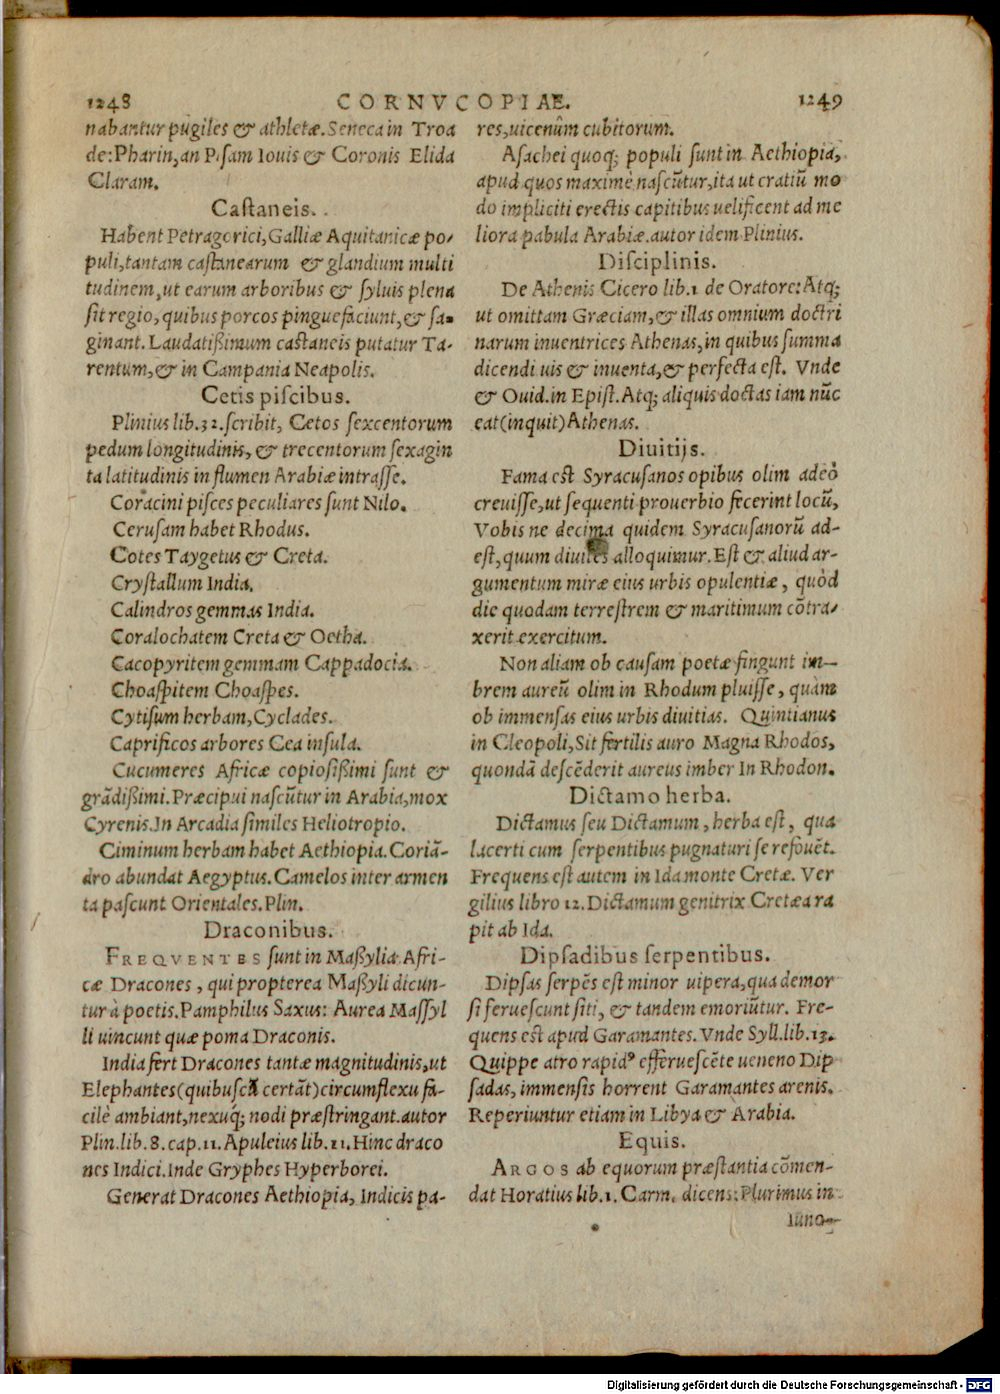 1248 CORNVCOPIAE. 1249
nabantur pugiles & athletæ. Seneca in Troa
de: Pharin, an Pisam Iouis & Coronis Elida
Claram.
Castaneis.
Habent Petragorici, Galliæ Aquitanicæ po-
puli, tantam castanearum & glandium multi
tudinem, ut earum arboribus & syluis plena
sit regio, quibus porcos pinguefaciunt, & sa-
ginant. Laudatißimum castaneis putatur Ta-
rentum, & in Campania Neapolis.
Cetis piscibus.
Plinius lib. 32. scribit, Cetos sexcentorum
pedum longitudinis, & trecentorum sexagin
ta latitudinis in flumen Arabiæ intrasse.
Coracini pisces peculiares sunt Nilo.
Cerusam habet Rhodus.
Cotes Taygetus & Creta.
Crystallum India.
Calindros gemmas India.
Coralochatem Creta & Oetha.
Cacopyritem gemmam Cappadocia.
Choaspitem Choaspes.
Cytisum herbam, Cyclades.
Caprificos arbores Cea insula.
Cucumeres Africæ copiosißimi sunt &
grãdißimi. Præcipui nascũtur in Arabia, mox
Cyrenis. In Arcadia similes Heliotropio.
Ciminum herbam habet Aethiopia. Coriã-
dro abundat Aegyptus. Camelos inter armen
ta pascunt Orientales. Plin.
Draconibus.
FREQVENTES sunt in Maßylia Afri-
cæ Dracones, qui propterea Maßyli dicun-
tur à poetis. Pamphilus Saxus: Aurea Massyl
li uincunt quæ poma Draconis.
India fert Dracones tantæ magnitudinis, ut
Elephantes (quibuscũ certãt) circumflexu fa-
cilè ambiant, nexuq; nodi præstringant. autor
Plin. lib. 8. cap. 11. Apuleius lib. 11. Hinc draco
nes Indici. Inde Gryphes Hyperborei.
Generat Dracones Aethiopia, Indicis pa-
res, uicenûm cubitorum.
Asachei quoq; populi sunt in Aethiopia,
apud quos maximè nascũtur, ita ut cratiũ mo
do impliciti erectis capitibus uelificent ad me
liora pabula Arabiæ. autor idem Plinius.
Disciplinis.
De Athenis Cicero lib. 1 de Oratore: Atq;
ut omittam Græciam, & illas omnium doctri
narum inuentrices Athenas, in quibus summa
dicendi uis & inuenta, & perfecta est. Vnde
& Ouid. in Epist. Atq; aliquis doctas iam nũc
eat (inquit) Athenas.
Diuitijs.
Fama est Syracusanos opibus olim adeò
creuisse, ut sequenti prouerbio fecerint locũ,
Vobis ne decima quidem Syracusanorũ ad-
est, quum diuites alloquimur. Est & aliud ar-
gumentum miræ eius urbis opulentiæ, quòd
die quodam terrestrem & maritimum cõtra-
xerit exercitum.
Non aliam ob causam poetæ fingunt im-
brem aureũ olim in Rhodum pluisse, quàm
ob immensas eius urbis diuitias. Quintianus
in Cleopoli, Sit fertilis auro Magna Rhodos,
quondã descẽderit aureus imber In Rhodon.
Dictamo herba.
Dictamus seu Dictamum, herba est, qua
lacerti cum serpentibus pugnaturi se refouẽt.
Frequens est autem in Ida monte Cretæ. Ver
gilius libro 12. Dictamum genitrix Cretæa ra
pit ab Ida.
Dipsadibus serpentibus.
Dipsas serpẽs est minor uipera, qua demor
si feruescunt siti, & tandem emoriũtur. Fre-
quens est apud Garamantes. Vnde Syll. lib. 13.
Quippe atro rapidꝰ efferuescẽte ueneno Dip
sadas, immensis horrent Garamantes arenis.
Reperiuntur etiam in Libya & Arabia.
Equis.
ARGOS ab equorum præstantia cõmen-
dat Horatius lib. 1. Carm. dicens: Plurimus in
Iuno-
Digitalisierung gefördert durch die Deutsche Forschungsgemeinschaft - DFG